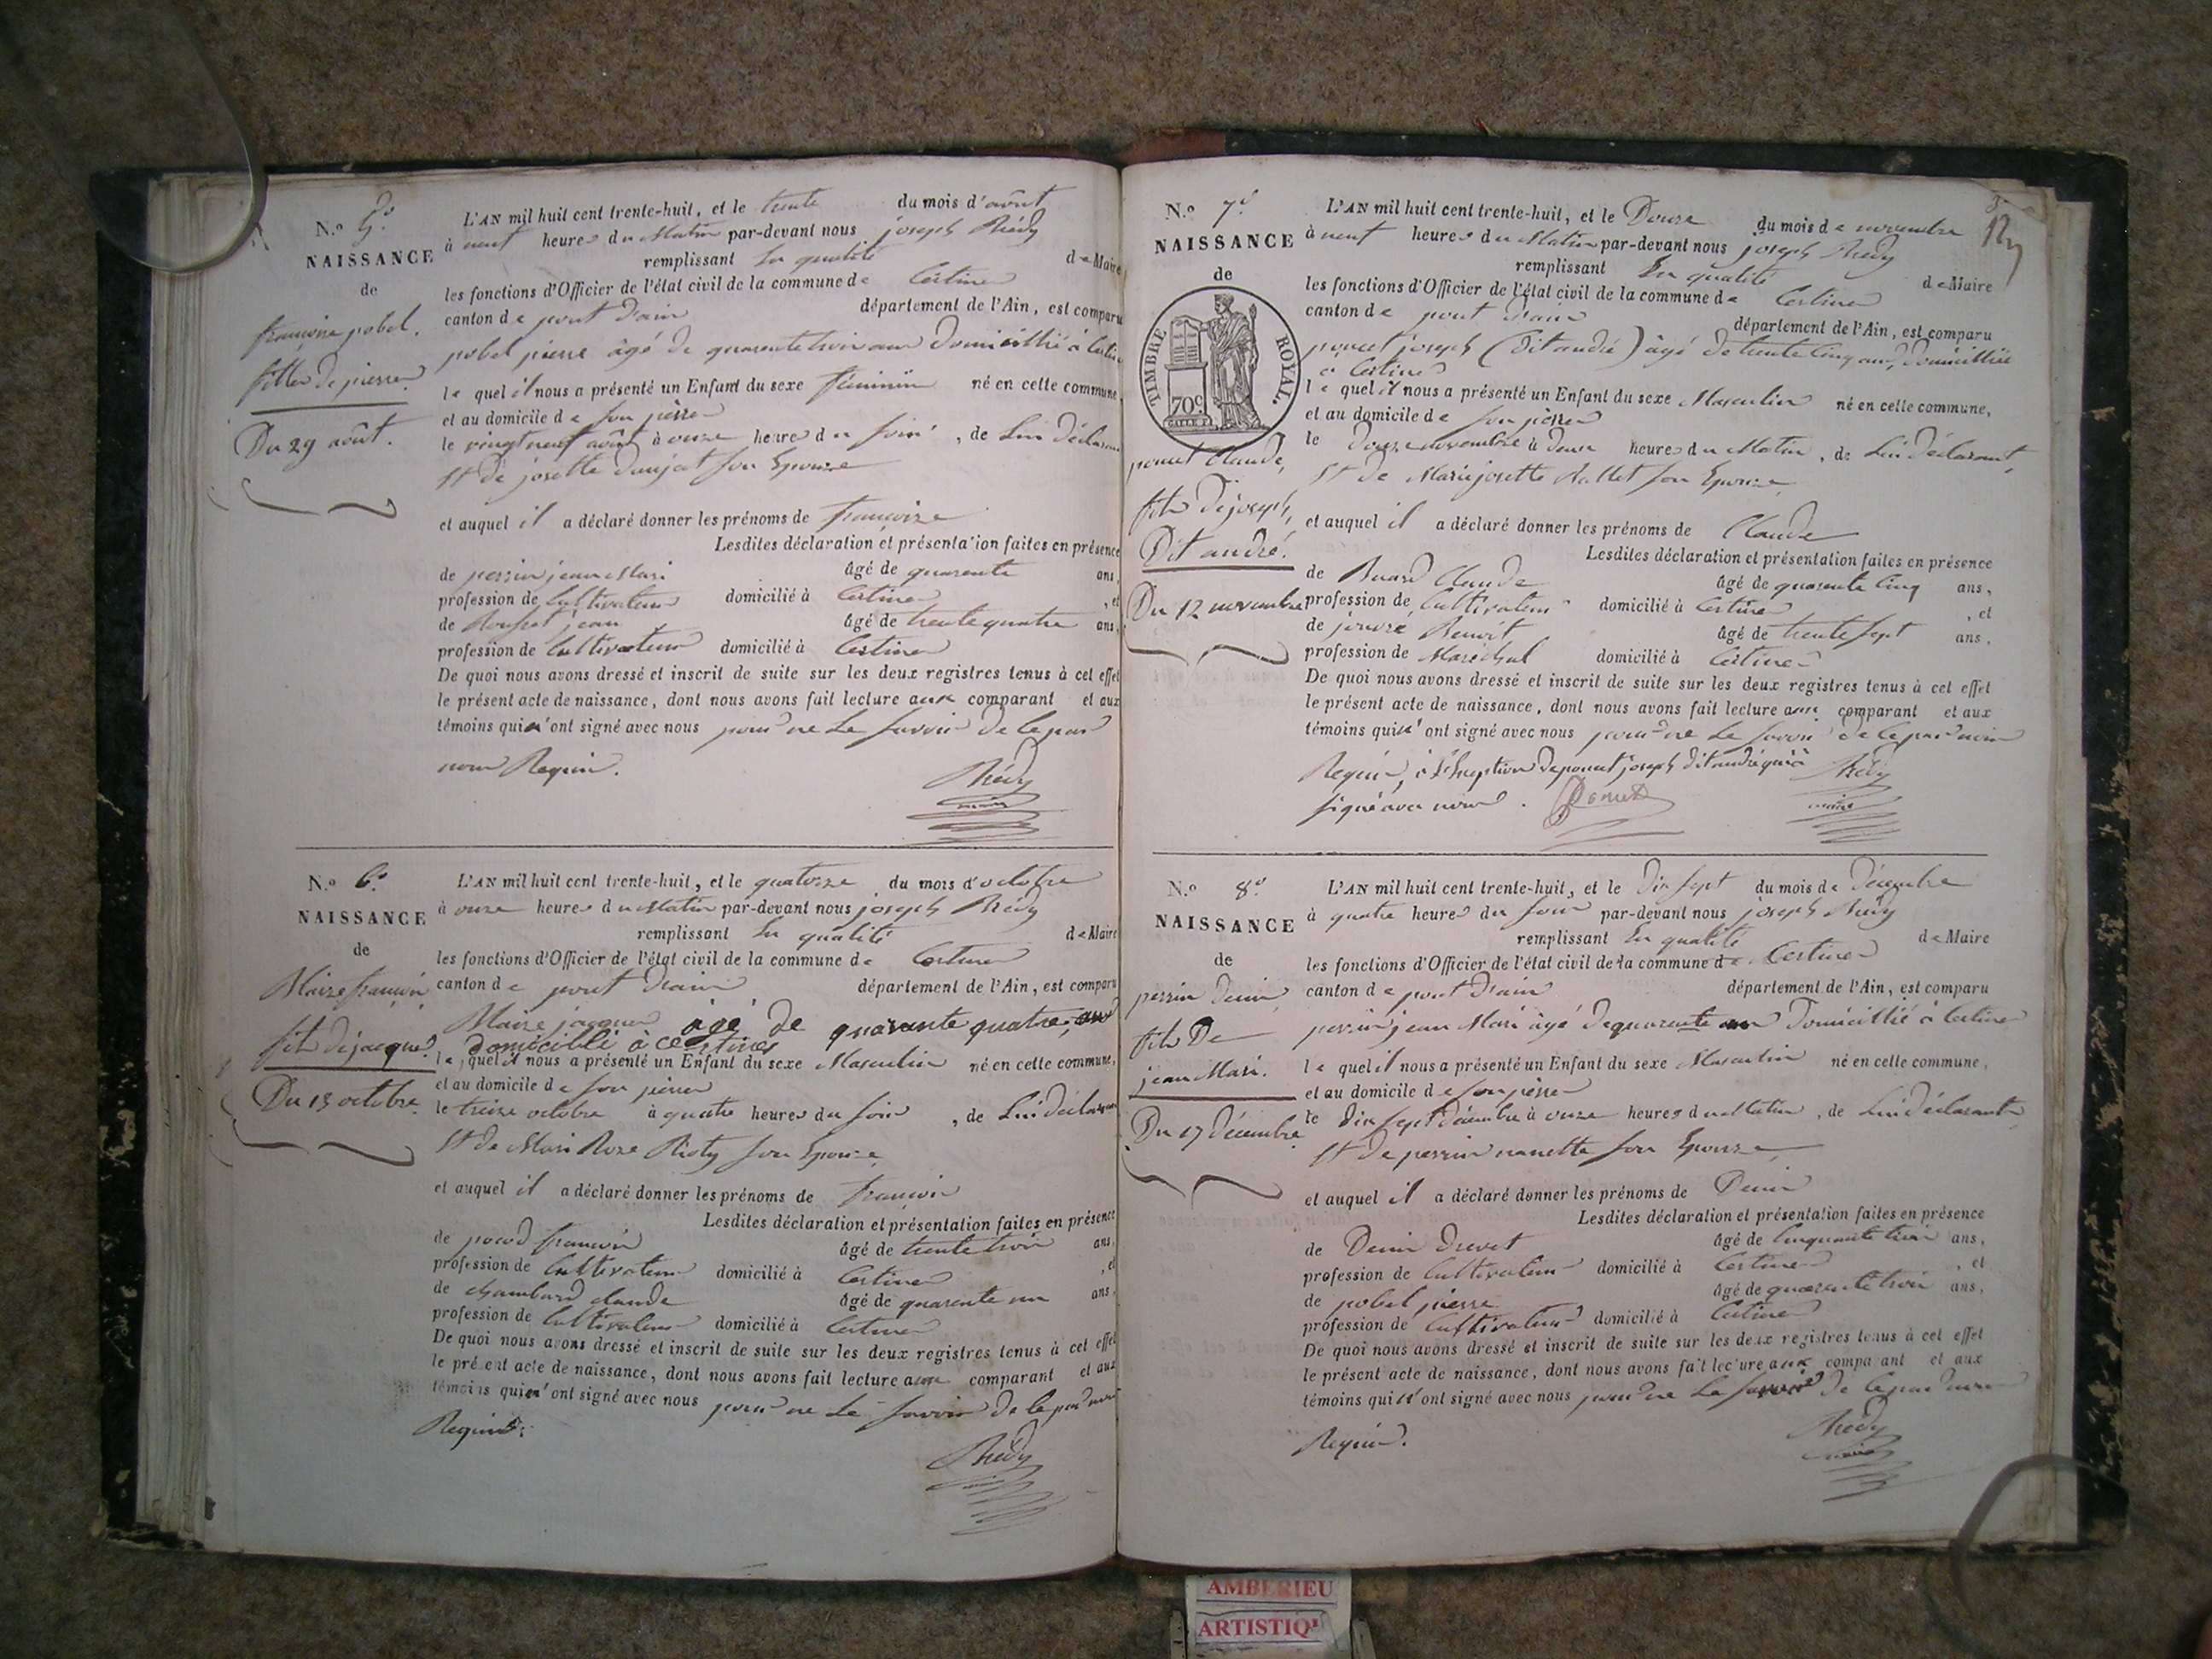 N.º 5.e
NAISSANCE
de
françoise pobel.
fille de pierre
Du 29 août.
L'AN mil huit cent trente-huit, et le trente du mois d'août
à neuf heures du Matin par-devant nous joseph
remplissant En qualité de Maire
les fonctions d'Officier de l'état civil de la commune de Certines
canton de pont d'ain département de l'Ain, est comparu
pobel pierre âgé de quarente trois ans Domicillié à Certines
le quel il nous a présenté un Enfant du sexe féminin né en cette commune,
et au domicile de son père
le vingt neuf août à onze heures du soir, de Lui Déclarant
Et De josette son Epouse
et auquel il a déclaré donner les prénoms de françoise
Lesdites déclaration et présentation faites en présence
de perrin jean Mari âgé de quarente ans,
profession de Cultivateur domicilié à Certines, et
de jean âgé de trente quatre ans,
profession de Cultivateur domicilié à Certines
De quoi nous avons dressé et inscrit de suite sur les deux registres tenus à cet effet
le présent acte de naissance, dont nous avons fait lecture aux comparant et aux
témoins qui n'ont signé avec nous pour ne Le savoir De ce par
nous Requis.
maire
N.º 6.e
NAISSANCE
de
Maire françois
fils de jacques
Du 13 octobre
L'AN mil huit cent trente-huit, et le quatorze du mois d'octobre
à onze heures du Matin par-devant nous joseph
remplissant En qualité de Maire
les fonctions d'Officier de l'état civil de la commune de Certines
canton de pont d'ain département de l'Ain, est comparu
Maire jacques âgé de quarante quatre ans
domicillié à certines
le quel il nous a présenté un Enfant du sexe Masculin né en cette commune,
et au domicile de son père
le treize octobre à quatre heures du soir, de Lui déclarant
Et de Mari Roze son Epouse
et auquel il a déclaré donner les prénoms de françois
Lesdites déclaration et présentation faites en présence
de pocod françois âgé de trente trois ans,
profession de Cultivateur domicilié à Certines, et
de chambard claude âgé de quarente un ans,
profession de Cultivateur domicilié à Certines
De quoi nous avons dressé et inscrit de suite sur les deux registres tenus à cet effet
le présent acte de naissance, dont nous avons fait lecture aux comparant et aux
témoins qui n'ont signé avec nous pour ne Le savoir De ce par nous
Requis.
12
N.º 7.e
NAISSANCE
de
TIMBRE ROYAL.
70c.
poncet Claude,
fils De joseph,
Dit andré.
Du 12 novembre
L'AN mil huit cent trente-huit, et le Douze du mois de novembre
à neuf heures du Matin par-devant nous joseph
remplissant En qualité de Maire
les fonctions d'Officier de l'état civil de la commune de Certines
canton de pont d'ain département de l'Ain, est comparu
poncet joseph (Dit andré) âgé de trente Cinq ans, Domicillié
à Certines
le quel il nous a présenté un Enfant du sexe Masculin né en cette commune,
et au domicile de son père
le Douze novembre à Deux heures du Matin, de Lui déclarant,
Et De Marie josette son Epouse
et auquel il a déclaré donner les prénoms de Claude
Lesdites déclaration et présentation faites en présence
de Buard Claude âgé de quarente Cinq ans,
profession de Cultivateur domicilié à Certines, et
de Benoît âgé de trente sept ans,
profession de Maréchal domicilié à Certines
De quoi nous avons dressé et inscrit de suite sur les deux registres tenus à cet effet
le présent acte de naissance, dont nous avons fait lecture aux comparant et aux
témoins qui n'ont signé avec nous pour ne Le savoir de ce par nous
Requis, à L'Exeption De poncet joseph dit andré qui a
signé avec nous. Poncet
maire
N.º 8.e
NAISSANCE
de
perrin Denis
fils De
jean Mari.
Du 17 décembre
L'AN mil huit cent trente-huit, et le Dix sept du mois de Décembre
à quatre heures du soir par-devant nous joseph
remplissant En qualité de Maire
les fonctions d'Officier de l'état civil de la commune de Certines
canton de pont d'ain département de l'Ain, est comparu
perrin jean Mari âgé de quarente ans Domicillié à Certines
le quel il nous a présenté un Enfant du sexe Masculin né en cette commune,
et au domicile de son père
le Dix sept Décembre à onze heures du Matin, de Lui déclarant
Et De perrin nanette son Epouse
et auquel il a déclaré donner les prénoms de Denis
Lesdites déclaration et présentation faites en présence
de Denis Drevet âgé de Cinquante trois ans,
profession de Cultivateur domicilié à Certines, et
de pobel pierre âgé de quarente trois ans,
profession de Cultivateur domicilié à Certines
De quoi nous avons dressé et inscrit de suite sur les deux registres tenus à cet effet
le présent acte de naissance, dont nous avons fait lecture aux comparant et aux
témoins qui n'ont signé avec nous pour ne Le savoir De ce par nous
Requis.
maire
AMBERIEU
ARTISTIQ